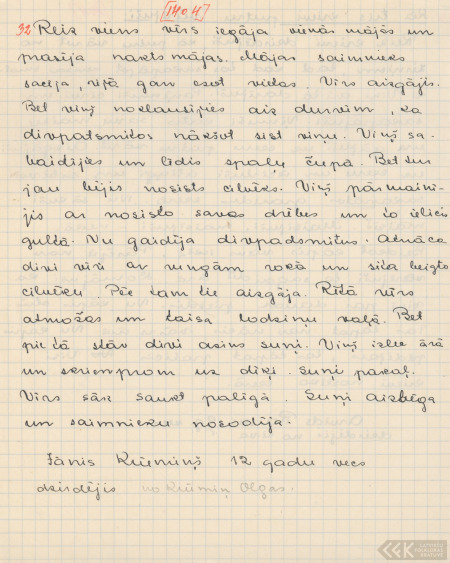 1404
32 Reiz viens vīrs iegāja vienās mājās un
prasīja nakts mājas. Mājas saimnieks
sacīja, rijā gan esot vietas. Vīrs aizgājis.
Bet viņš noklausījies aiz durvīm, ka
divpatsmitos nākšot sist viņu. Viņš sa-
baidījies un līdis spaļu čupā. Bet tur
jau bijis nosists cilvēks. Viņš pārmainī-
jis ar nosisto savas drēbes un to ielicis
gultā. Nu gaidīja divpadsmitus. Atnāca
divi vīri ar rungām rokā un sita beigto
cilvēku. Pēc tam tie aizgāja. Rītā vīrs
atmožas un taisa lodziņu vaļā. Bet
pie tā stāv divi asins suņi. Viņš izlec ārā
un skrien prom uz dīķi. Suņi pakaļ.
Vīrs sāk saukt palīgā. Suņi aizbēga
un saimnieku nosodīja.
Jānis Krūmiņš 12 gadu vecs
dzirdējis no Krūmiņ Olgas.
LATVIEŠU
FOLKLORAS
KRĀTUVE